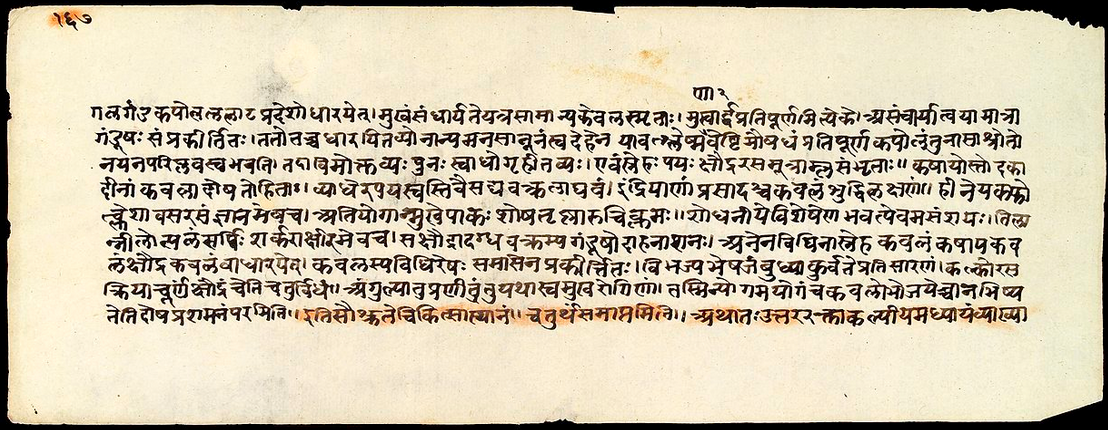 १६७
ण २
गलगंडकपोलललाटप्रदेशोधारयेत्। मुखंसंधार्यतेयत्रसामान्यकवलस्मृताः। मुखार्द्धप्रतिपूर्णमित्येके। असंचार्यात्वयामात्रा
गंडूषः संप्रकीर्त्तितः। ततोवच्चधारयितव्योनान्यमनसा देहेन यावत् औषधं प्रतिपूर्णकपोलंतुनासाश्रोतो
नयनपरिप्लवस्वभवति। तदाविमोक्तव्यः पुनः स्वाधोगृहीतव्यः। एवंस्नेहः पयः क्षौद्ररसमूत्राम्लसंभृताः॥ कषायोस्तोदका
दीनां कवलादोषतोहिताः। व्याधेरपचयस्तुस्तिवैसद्यवक्त्रलाघवं। इंद्रियाणां प्रसादश्चकवलेशुद्धिलक्षणं। हीनेयकफो
त्क्लेशावसरसंज्ञानमेवच। अतियोगान्मुखपाकः शोषतृह्णारुचिक्लमः॥ शोधनीयेविशेषेणभवत्येवमसंशयः। तिला
न्नीलोत्पलंसर्पिः शर्कराक्षीरमेवच। सक्षौद्रादग्धवक्त्रस्यगंडूषोदाहनाशनः। अनेनविधिनास्नेहकवलंकषायकव
लंक्षौद्रकवलंवाधारयेत्। कवलस्यविधिरेषः समासेनप्रकीर्त्तितः। विभज्यभेषजंबुध्याकुर्वनेप्रतिसारणं। कल्कोरस
क्रियाचूर्णक्षौद्रंचेतिचतुर्विधं॥ अंगुल्यातुप्रणीतुंतुयथास्वमुखरोगिणां। तस्मिन्योगमयोगंचकवलोभोजयेच्चानभिष्य
तेतिदोषप्रशमनंपरमिति॥ इतिसौश्रुतेचिकित्सास्थानं॥ चतुर्थंसमाप्तमिति॥ अथातःउत्तर कल्पीयमध्यायंव्याख्या